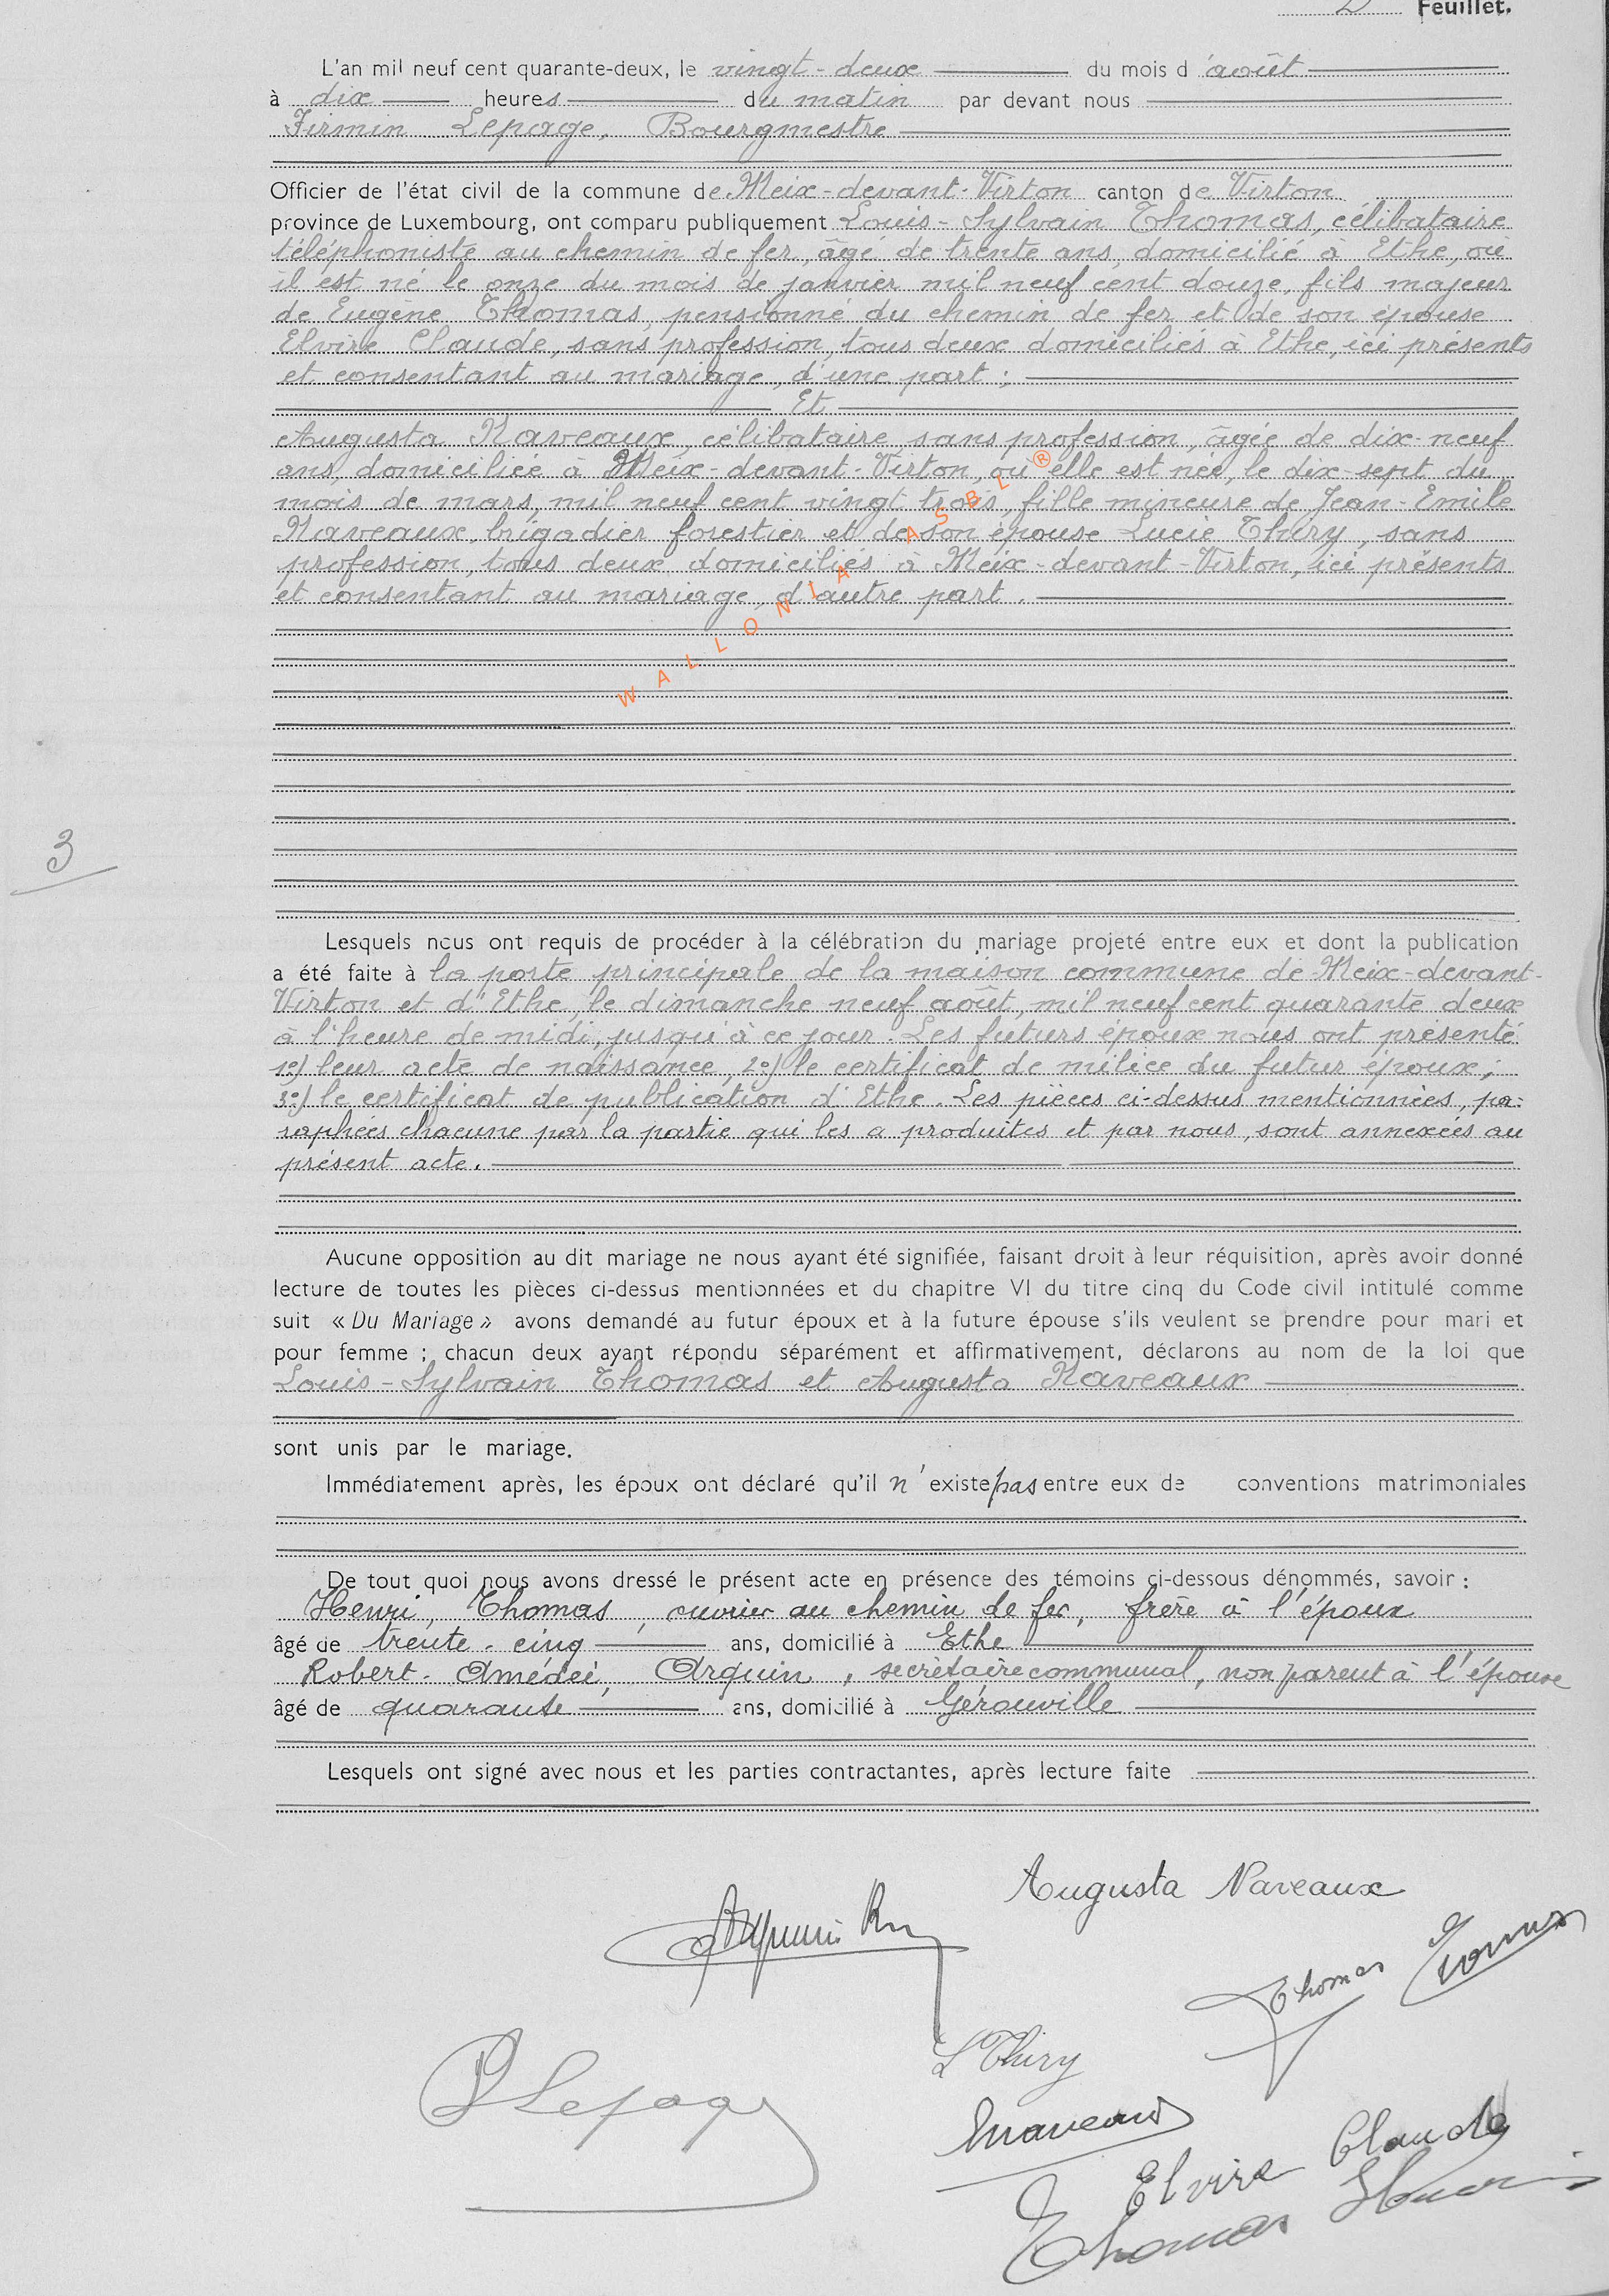 2 Feuillet.
L'an mil neuf cent quarante-deux, le vingt-deux du mois d'août
à dix heures du matin par devant nous
Firmin Lepage, Bourgmestre
Officier de l'état civil de la commune de Meix-devant-Virton canton de Virton
province de Luxembourg, ont comparu publiquement Louis-Sylvain Thomas, célibataire
téléphoniste au chemin de fer, âgé de trente ans, domicilié à Ethe, où
il est né le onze du mois de janvier mil neuf cent douze, fils majeur
de Eugène Thomas, pensionné du chemin de fer et de son épouse
Elvire Claude, sans profession, tous deux domiciliés à Ethe, ici présents
et consentant au mariage, d'une part ;
Et
Augusta Naveaux, célibataire sans profession, âgée de dix-neuf
ans, domiciliée à Meix-devant-Virton, où elle est née, le dix-sept du
mois de mars, mil neuf cent vingt trois, fille mineure de Jean-Emile
Naveaux, brigadier forestier et de son épouse Lucie Thiry, sans
profession, tous deux domiciliés à Meix-devant-Virton, ici présents
et consentant au mariage, d'autre part.
WALLONIA ASBL ®
3
Lesquels nous ont requis de procéder à la célébration du mariage projeté entre eux et dont la publication
a été faite à la porte principale de la maison commune de Meix-devant-
Virton et d'Ethe, le dimanche neuf août, mil neuf cent quarante deux
à l'heure de midi, jusqu'à ce jour. Les futurs époux nous ont présenté
1e) leur acte de naissance, 2e) le certificat de milice du futur époux ;
3e) le certificat de publication d'Ethe. Les pièces ci-dessus mentionnées, pa-
raphées chacune par la partie qui les a produites et par nous, sont annexées au
présent acte.
Aucune opposition au dit mariage ne nous ayant été signifiée, faisant droit à leur réquisition, après avoir donné
lecture de toutes les pièces ci-dessus mentionnées et du chapitre VI du titre cinq du Code civil intitulé comme
suit « Du Mariage » avons demandé au futur époux et à la future épouse s'ils veulent se prendre pour mari et
pour femme ; chacun deux ayant répondu séparément et affirmativement, déclarons au nom de la loi que
Louis-Sylvain Thomas et Augusta Naveaux
sont unis par le mariage.
Immédiatement après, les époux ont déclaré qu'il n'existe pas entre eux de conventions matrimoniales
De tout quoi nous avons dressé le présent acte en présence des témoins ci-dessous dénommés, savoir :
Henri, Thomas, ouvrier au chemin de fer, frère à l'époux
âgé de trente-cinq ans, domicilié à Ethe
Robert-Amédée, Arquin, secrétaire communal, non parent à l'épouse
âgé de quarante ans, domicilié à Gérouville
Lesquels ont signé avec nous et les parties contractantes, après lecture faite
Augusta Naveaux
Arquin R
Thomas Thomas
L Thiry
Lepage
Naveaux
Elvire Claude
Thomas Henri